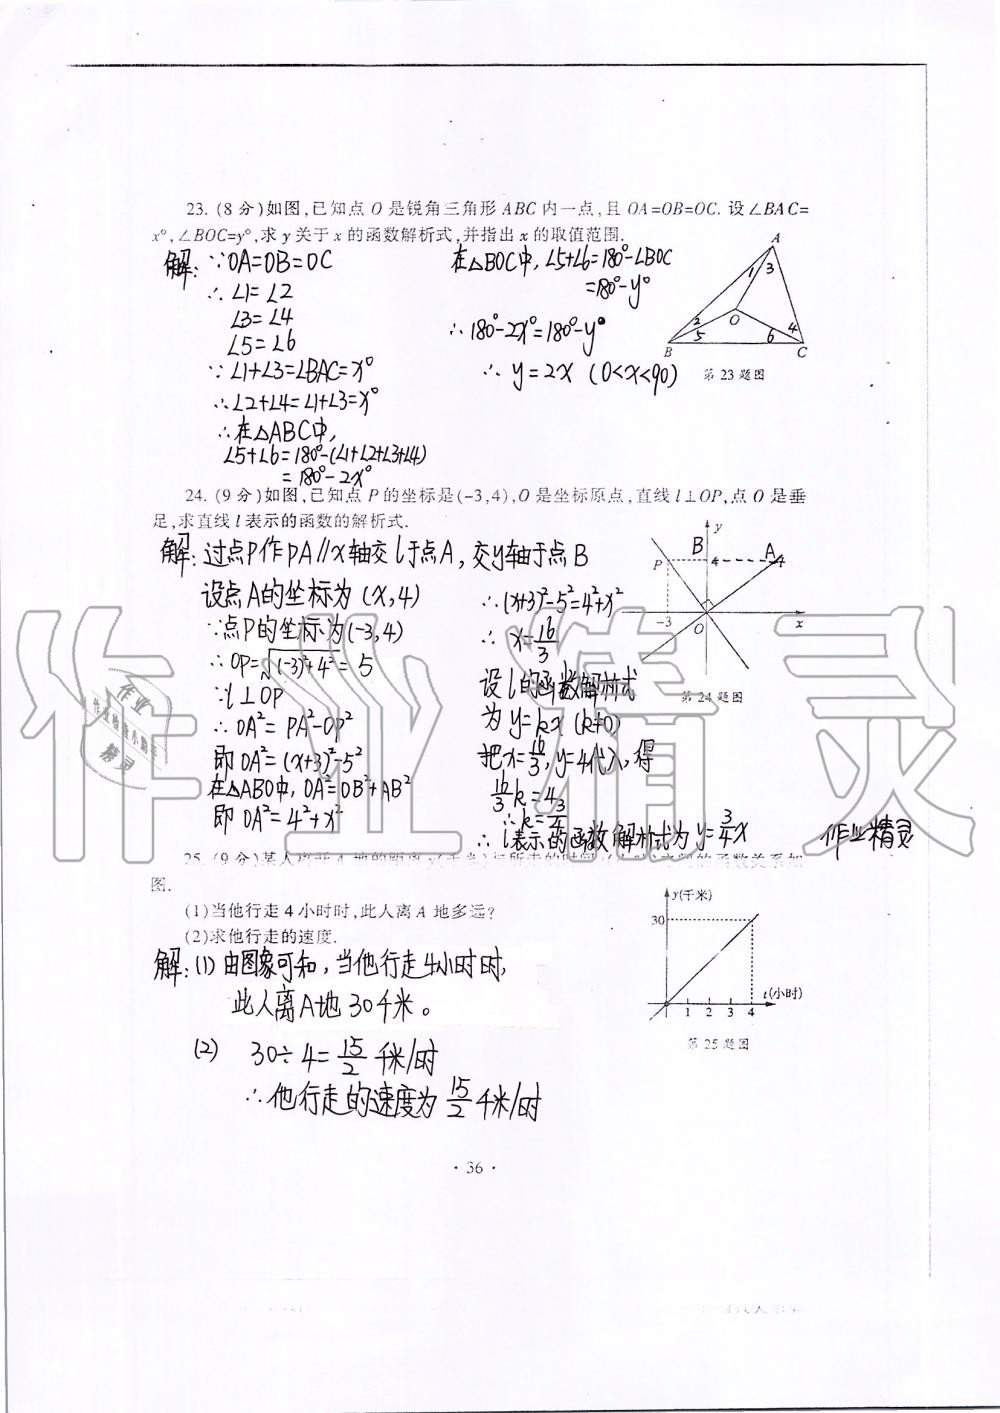 23. (8分)如图,已知点 O 是锐角三角形 ABC 内一点,且 OA=OB=OC. 设∠BAC=
x°,∠BOC=y°,求 y 关于 x 的函数解析式,并指出 x 的取值范围.
解: ∵OA=OB=OC
∴ ∠1=∠2
∠3=∠4
∠5=∠6
∵ ∠1+∠3=∠BAC=x°
∴∠2+∠4=∠1+∠3=x°
∴在△ABC中,
∠5+∠6=180°-(∠1+∠2+∠3+∠4)
=180°-2x°
在△BOC中,∠5+∠6=180°-∠BOC
=180°-y°
∴ 180°-2x°=180°-y°
∴ y=2x (0<x<90)
A
1
3
O
2
5
6
4
B
C
第 23 题图
24. (9分)如图,已知点 P 的坐标是(-3,4),O 是坐标原点,直线 l⊥OP,点 O 是垂
足,求直线 l 表示的函数的解析式.
解: 过点P作PA∥x轴交l于点A,交y轴于点B
设点A的坐标为(x,4)
∵点P的坐标为(-3,4)
∴OP=√(-3)²+4²=5
∵l⊥OP
∴OA²=PA²-OP²
即OA²=(x+3)²-5²
在△ABO中,OA²=OB²+AB²
即OA²=4²+x²
∴(x+3)²-5²=4²+x²
∴ x=16/3
设l的函数解析式
为y=kx(k≠0)
把x=16/3,y=4代入,得
16/3k=4
∴k=3/4
∴l表示的函数解析式为y=3/4x
作业精灵
y
B
A
P
4
-3
O
x
第 24 题图
25. (9分)某人离开 A 地的距离 y(千米)与所走的时间 t(小时)之间的函数关系如
图.
(1)当他行走 4 小时时,此人离 A 地多远?
(2)求他行走的速度.
解:(1)由图象可知,当他行走4小时时,
此人离A地30千米。
(2) 30÷4=15/2千米/时
∴他行走的速度为15/2千米/时
y(千米)
30
t(小时)
1 2 3 4
第 25 题图
· 36 ·
作业精灵